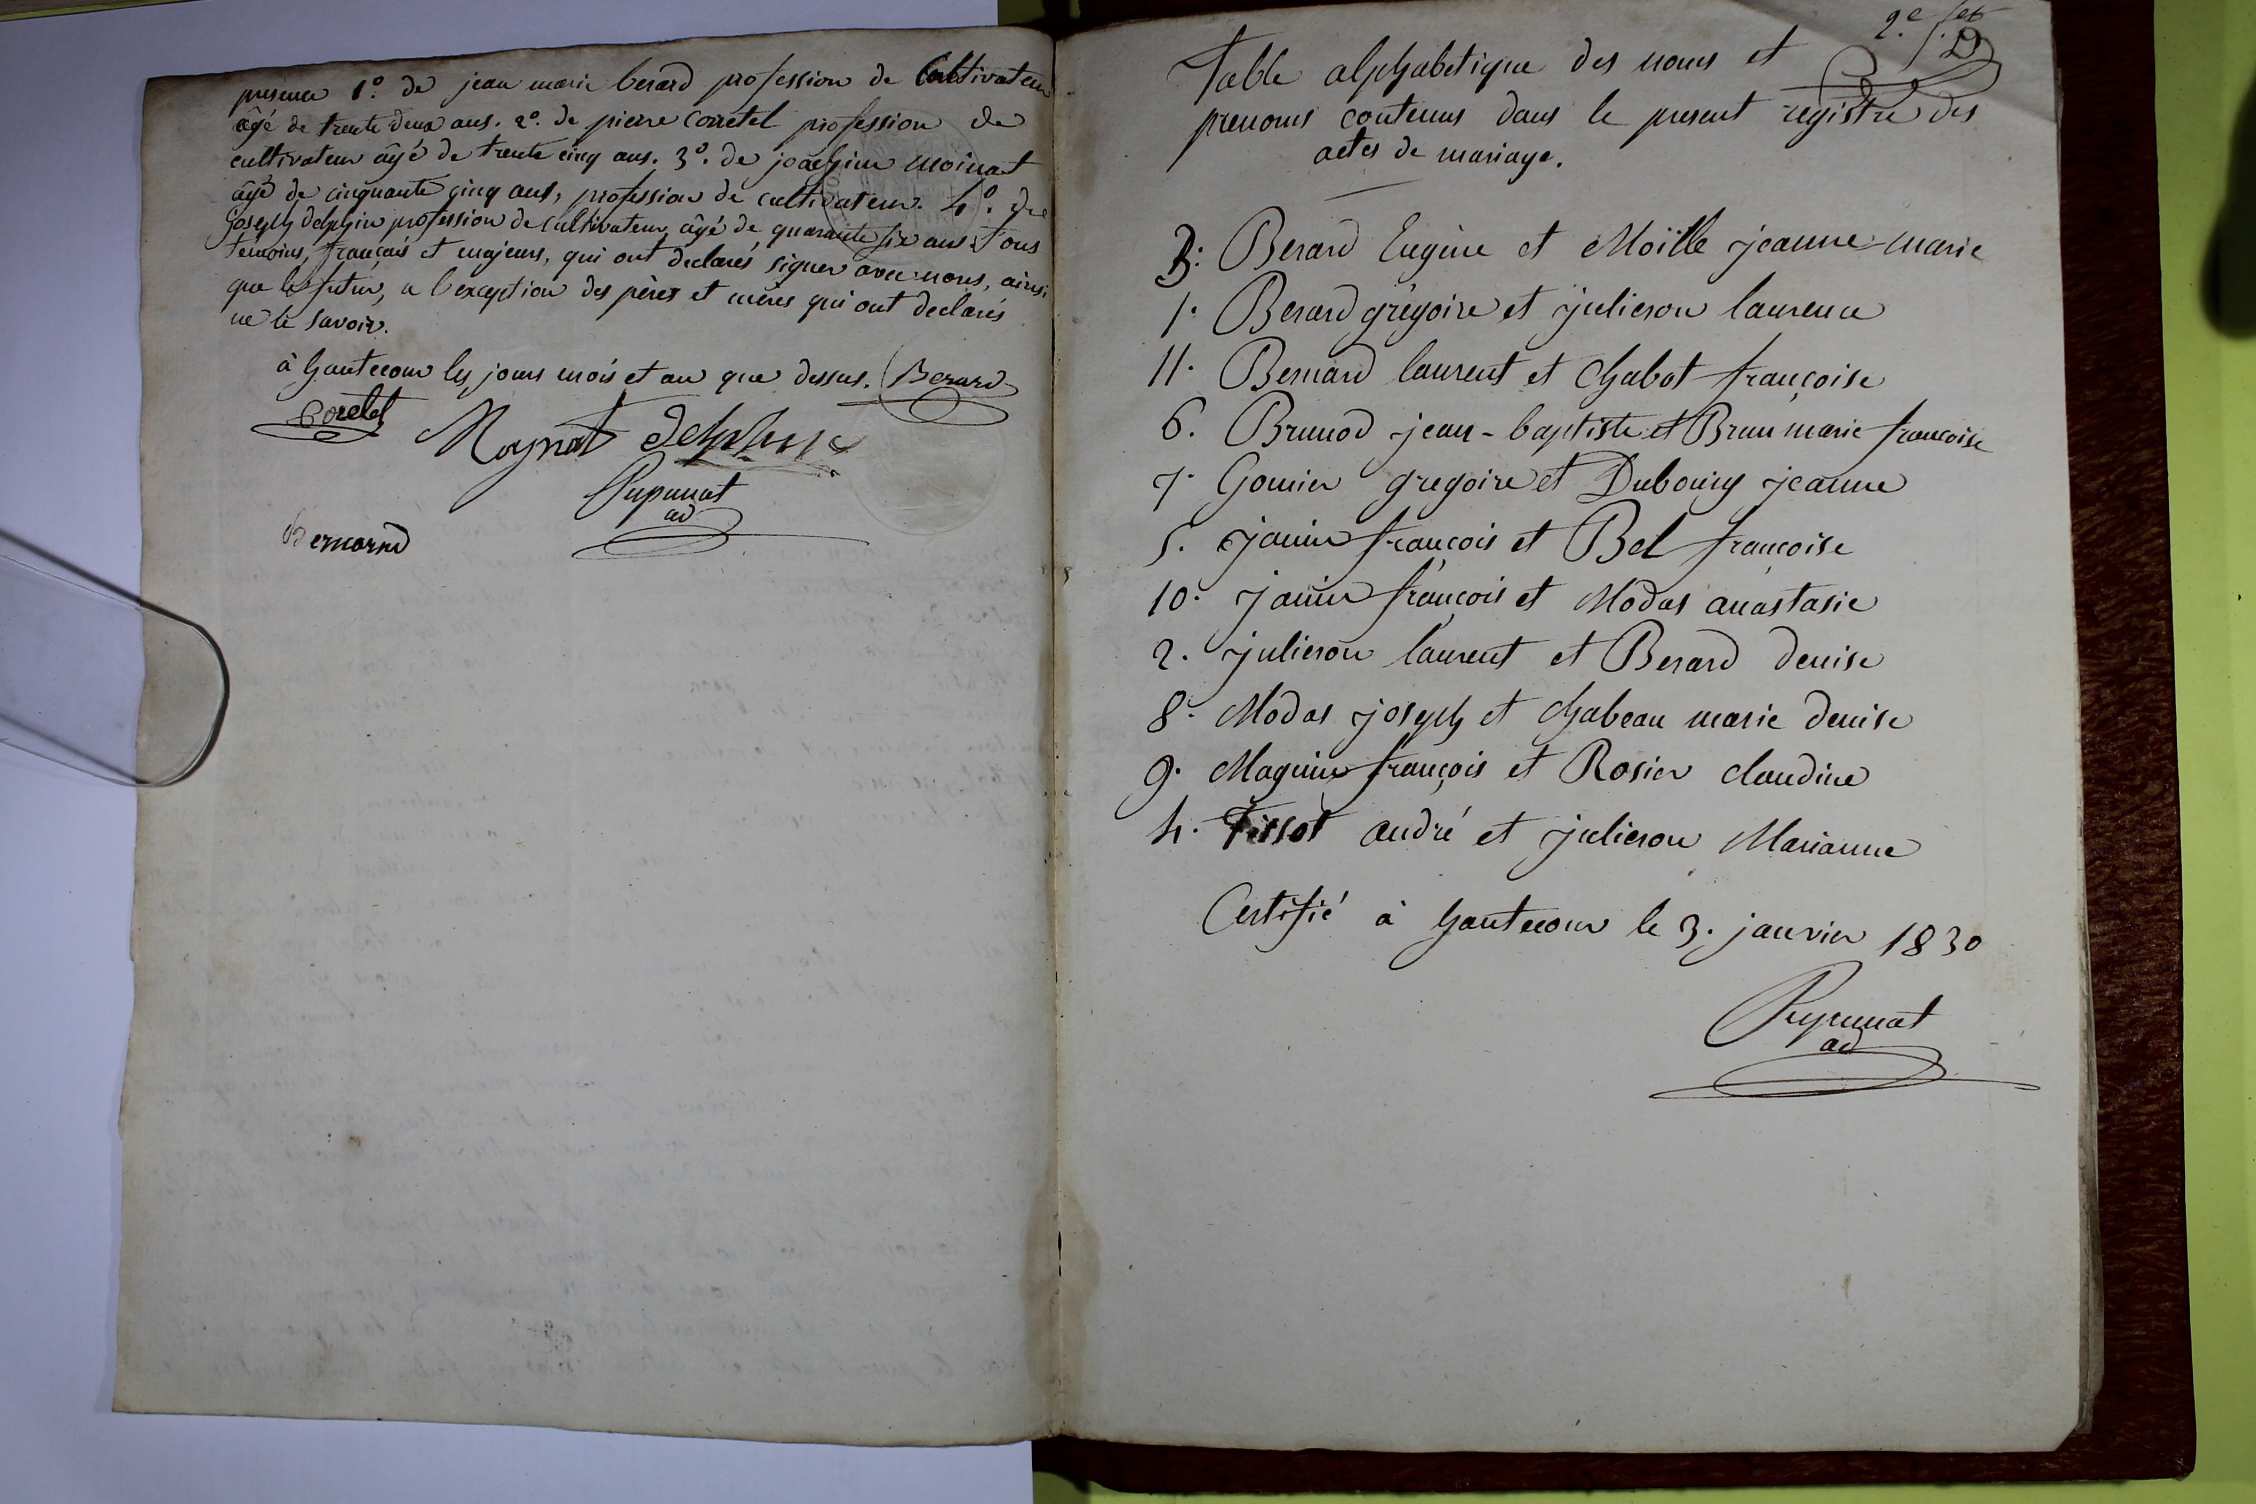 presence 1º. de jean marie berard profession de Cultivateur
âgé de trente deux ans. 2º. de pierre corretel profession de
cultivateur âgé de trente cinq ans. 3º. de joachim moinat
âgé de cinquante cinq ans, profession de cultivateur. 4º. de
joseph delphin profession de Cultivateur, âgé de quarante six ans tous
témoins, français et majeurs, qui ont declarés signer avec nous, ainsi
que le futur, a l'exception des pères et mères qui ont declarés
ne le savoir.
à hautecour les jours mois et an que dessus. Berard
Coretel
Moynat delphin
Pupunat
ad
Bernard
2e. f.et
Table alphabetique des noms et
prenoms contenus dans le present registre des
actes de mariage.
3. Berard Eugène et Moïlle jeanne-marie
1. Berard grégoire et julieron laurence
11. Bernard laurent et Chabot françoise
6. Brunod jean-baptiste et Brun marie françoise
7. Gonnier gregoire et Dubourg jeanne
5. janin françois et Bel françoise
10. janin françois et Modas anastasie
2. julieron laurent et Berard denise
8. Modas joseph et Chabeau marie denise
9. Magnin françois et Rosier claudine
4. Tissot andré et julieron Marianne
Certifié à hautecour le 3. janvier 1830
Pupunat
ad